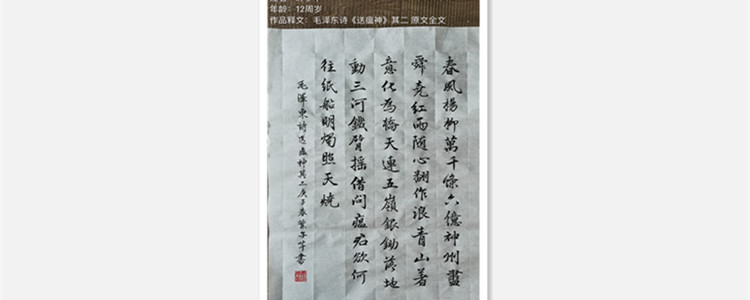 年龄：12周岁
作品释文：毛泽东诗《送瘟神》其二 原文全文
春風楊柳萬千條六億神州盡
舜堯紅雨随心翻作浪青山著
意化為橋天連五嶺銀鋤落地
動三河鐵臂摇借问瘟君欲何
往紙船明燭照天燒
毛澤東詩送瘟神其二庚子春書